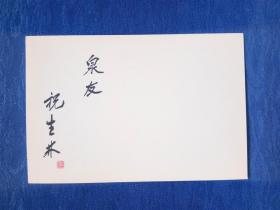 泉友
祝生林